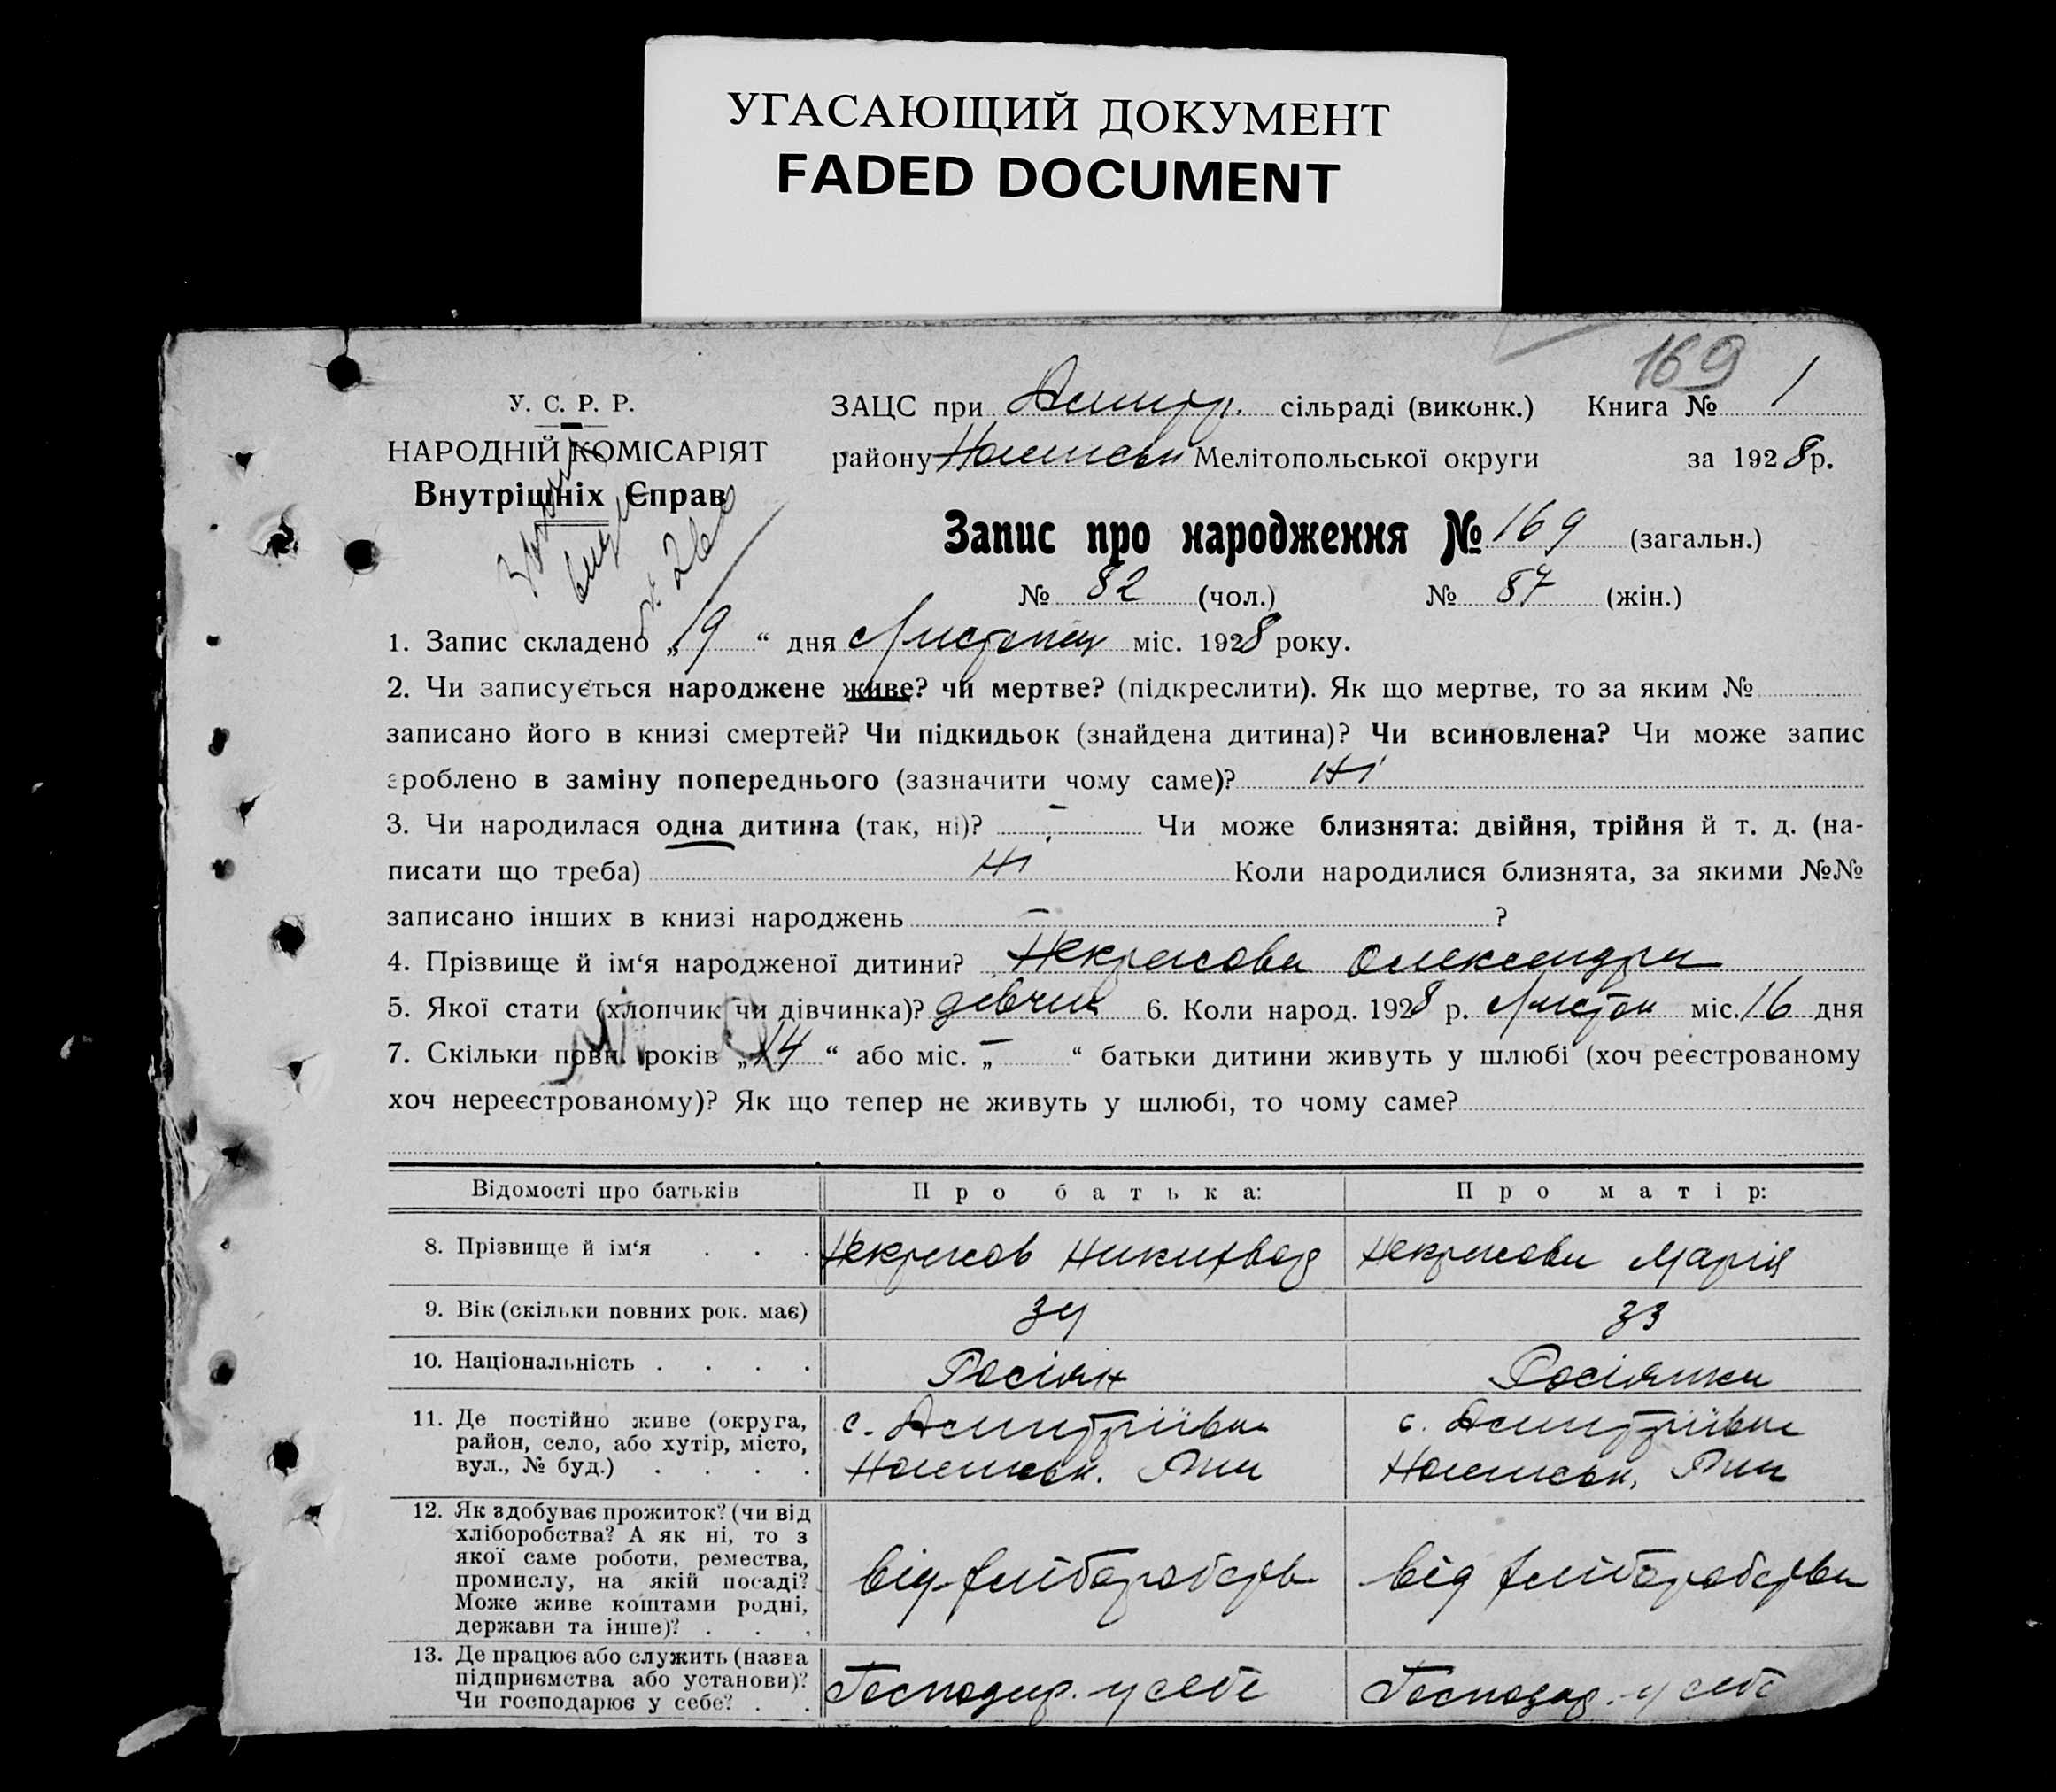 УГАСАЮЩИЙ ДОКУМЕНТ
FADED DOCUMENT
169
У. С. Р. Р.
НАРОДНІЙ КОМІСАРІЯТ
Внутрішніх Справ
ЗАЦС при сільраді (виконк.) Книга № 1
району Мелітопольської округи за 1928 р.
Запис про народження № 169 (загальн.)
№ 82 (чол.) № 87 (жін.)
1. Запис складено „19“ дня Листопад міс. 1928 року.
2. Чи записується народжене живе? чи мертве? (підкреслити). Як що мертве, то за яким №
записано його в книзі смертей? Чи підкидьок (знайдена дитина)? Чи всиновлена? Чи може запис
зроблено в заміну попереднього (зазначити чому саме)? Ні
3. Чи народилася одна дитина (так, ні)? – Чи може близнята: двійня, трійня й т. д. (на-
писати що треба) Ні Коли народилися близнята, за якими №№
записано інших в книзі народжень – ?
4. Прізвище й ім‘я народженої дитини? Некрасова Олександра
5. Якої стати (хлопчик чи дівчинка)? дівчин 6. Коли народ. 1928 р. Листоп міс. 16 дня
7. Скільки повн. років „14“ або міс. „–“ батьки дитини живуть у шлюбі (хоч реєстрованому
хоч нереєстрованому)? Як що тепер не живуть у шлюбі, то чому саме?
Відомості про батьків Про батька: Про матір:
8. Прізвище й ім‘я . . . Некрасов Некрасова Марія
9. Вік (скільки повних рок. має) 34 33
10. Національність . . . . Росіян Росіянка
11. Де постійно живе (округа,
район, село, або хутір, місто,
вул., № буд.) . . . .
с. Дмитріївка
с. Дмитріївка
12. Як здобуває прожиток? (чи від
хліборобства? А як ні, то з
якої саме роботи, ремества,
промислу, на якій посаді?
Може живе коштами родні,
держави та інше)? . . .
від хліборобств
від хліборобства
13. Де працює або служить (назва
підприємства або установи)?
Чи господарює у себе? . .
Господар. у себе
Господар. у себе